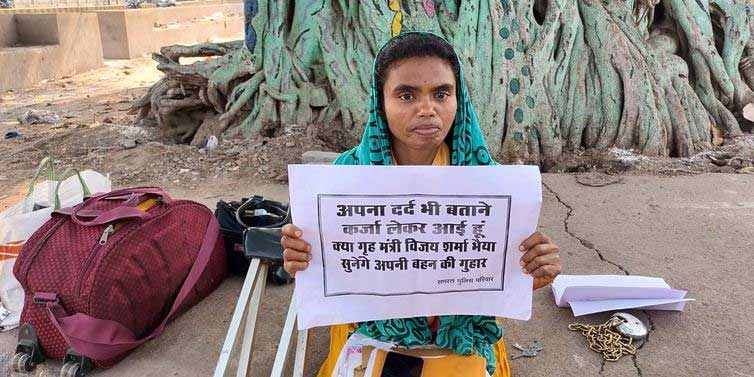 अपना दर्द भी बताने
कर्जा लेकर आई हूं
क्या गृह मंत्री विजय शर्मा भैया
सुनेंगे अपनी बहन की गुहार
समस्त पुलिस परिवार